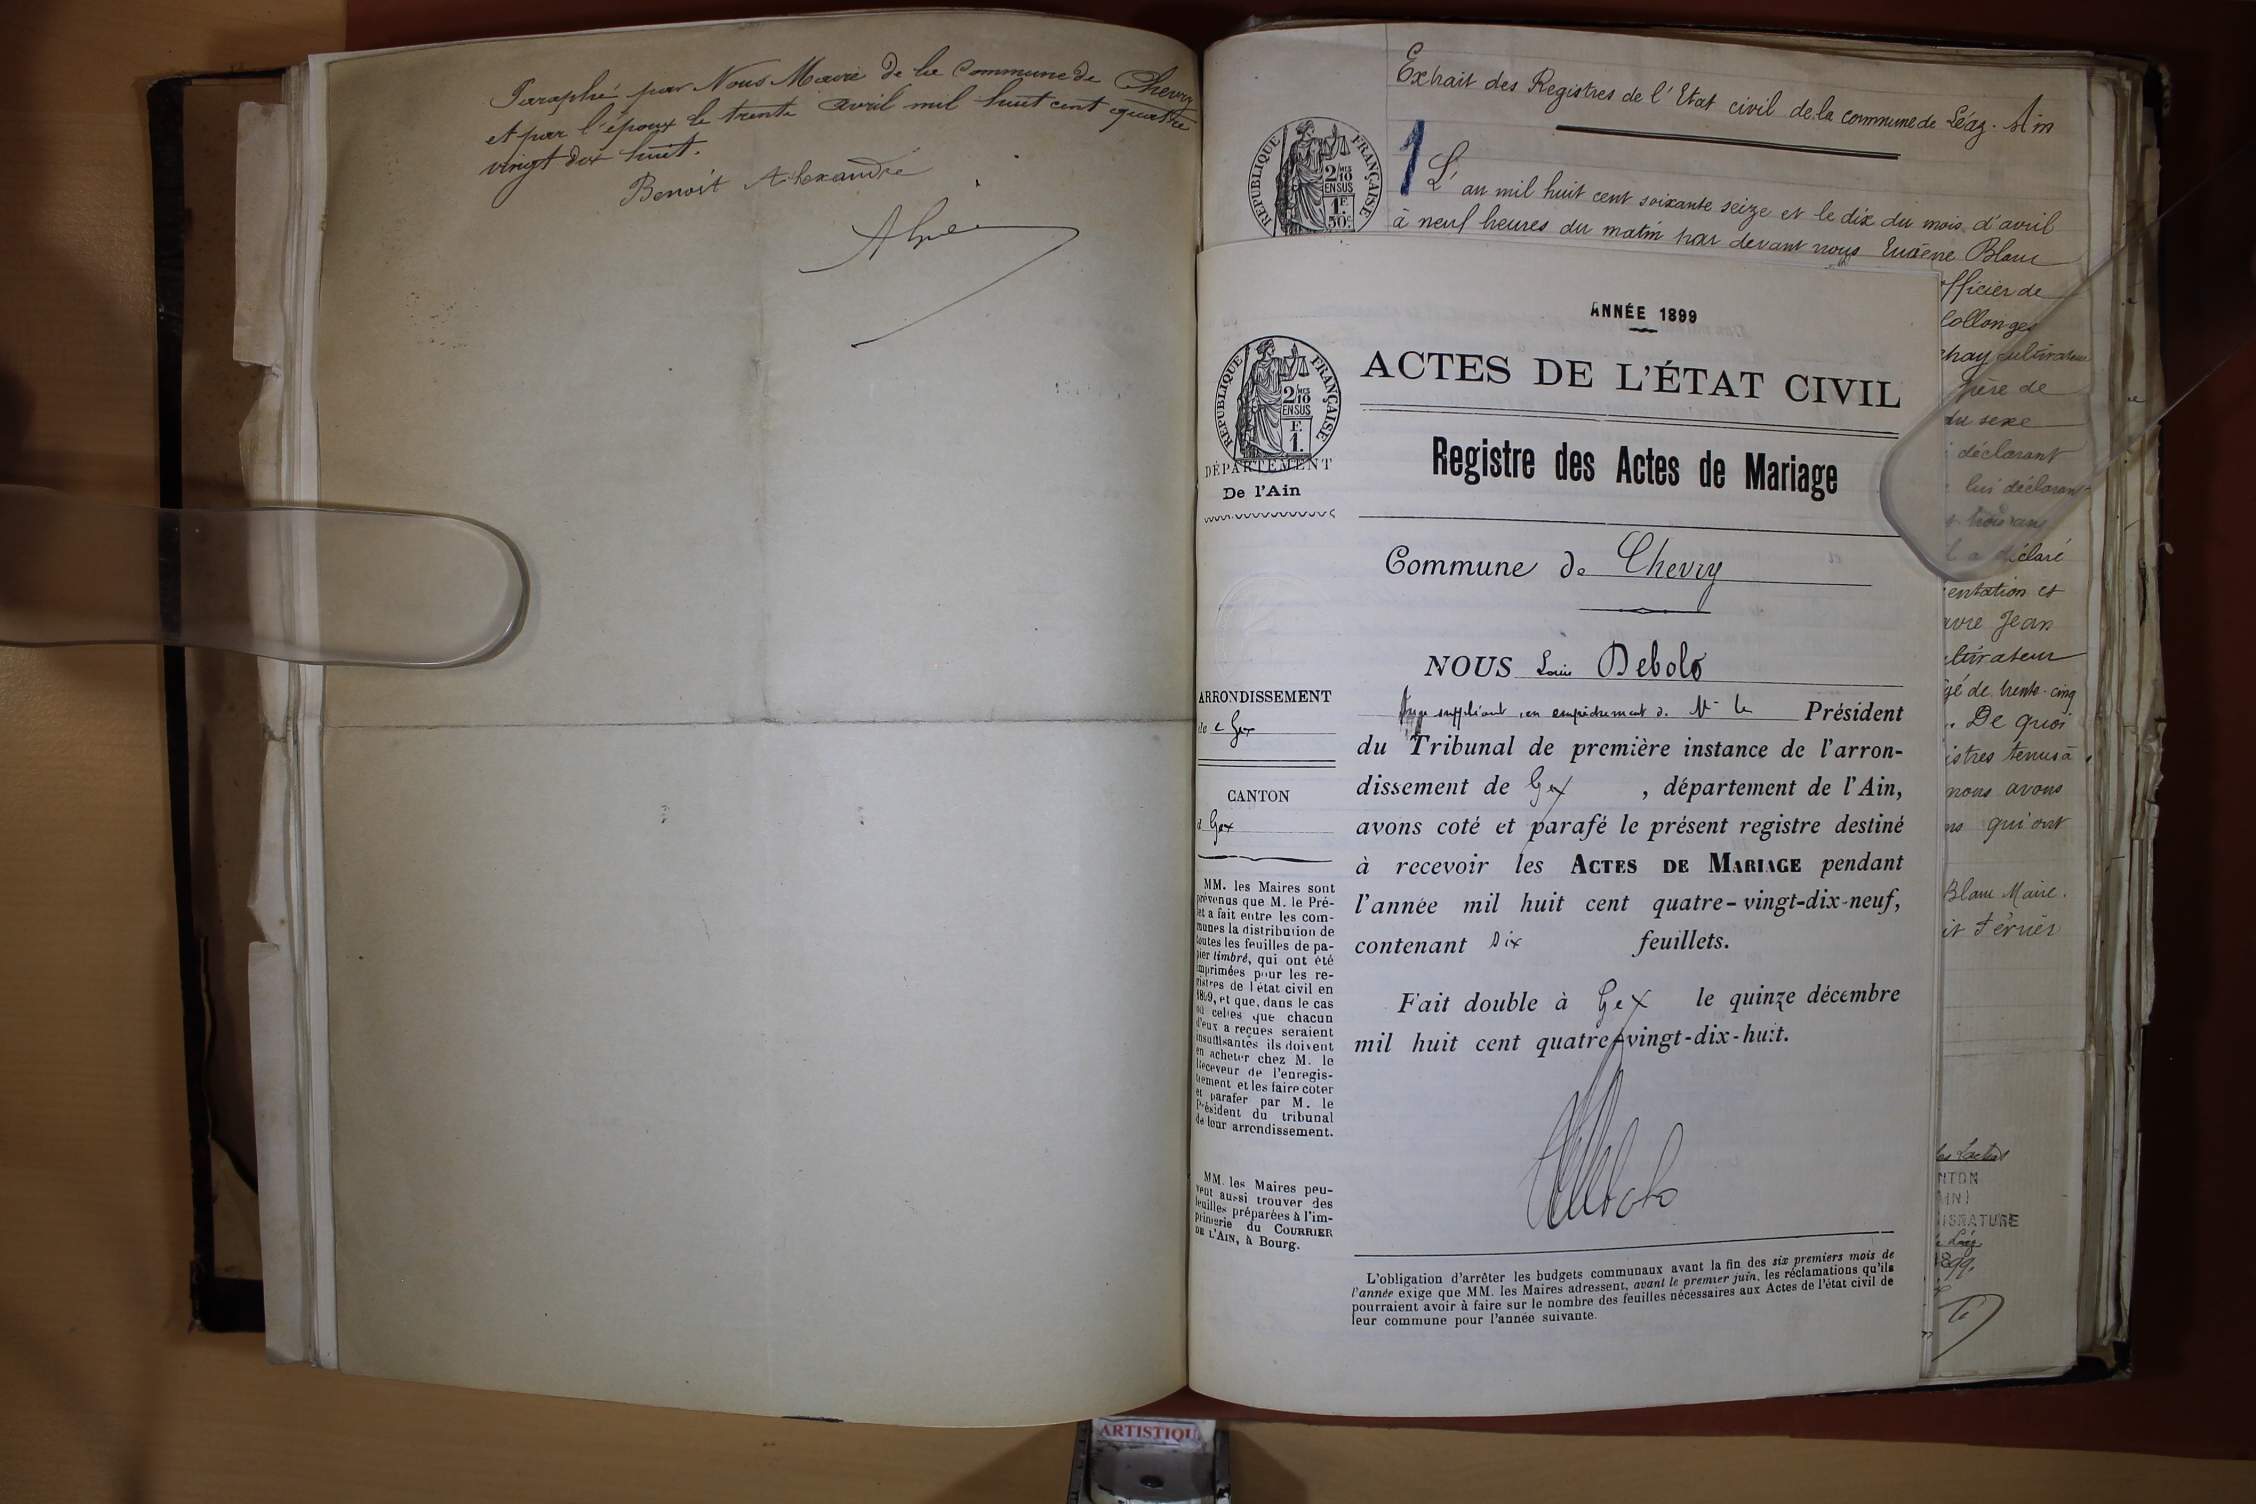 Paraphé par Nous Maire de la Commune de Chevry
et par l'époux le trente avril mil huit cent quatre
vingt dix huit.
Benoit Alexandre
Extrait des Registres de l'Etat civil de la commune de Léaz. Ain
1
L'an mil huit cent soixante seize et le dix du mois d'avril
à neuf heures du matin par devant nous Eugène Blanc
RÉPUBLIQUE FRANÇAISE
2/10 MES
EN SUS
1F.
50c.
officier de
Collonges
cultivateur
père de
du sexe
déclarant
lui déclarant
trois ans
a déclaré
entation et
avre Jean
ltivateur
gé de trente-cinq
. De quoi
istres tenus à
nous avons
ns qui ont
Blanc Maire.
it Février
NTON
AIN)
ISRATURE
1899.
ANNÉE 1899
ACTES DE L'ÉTAT CIVIL
Registre des Actes de Mariage
RÉPUBLIQUE FRANÇAISE
2/10 MES
EN SUS
F.
1.
DÉPARTEMENT
De l'Ain
Commune de Chevry
NOUS Louis Debolo
Juge suppléant, en empêchement de Mr le Président
du Tribunal de première instance de l'arron-
dissement de Gex , département de l'Ain,
avons coté et parafé le présent registre destiné
à recevoir les ACTES DE MARIAGE pendant
l'année mil huit cent quatre-vingt-dix-neuf,
contenant dix feuillets.
Fait double à Gex le quinze décembre
mil huit cent quatre-vingt-dix-huit.
Debolo
ARRONDISSEMENT
de Gex
CANTON
d Gex
MM. les Maires sont
prévenus que M. le Pré-
fet a fait entre les com-
munes la distribution de
toutes les feuilles de pa-
pier timbré, qui ont été
imprimées pour les re-
gistres de l'état civil en
1899, et que, dans le cas
où celles que chacun
d'eux a reçues seraient
insuffisantes ils doivent
en acheter chez M. le
Receveur de l'enregis-
trement et les faire coter
et parafer par M. le
Président du tribunal
de leur arrondissement.
MM. les Maires peu-
vent aussi trouver des
feuilles préparées à l'im-
primerie du COURRIER
DE L'AIN, à Bourg.
L'obligation d'arrêter les budgets communaux avant la fin des six premiers mois de
l'année exige que MM. les Maires adressent, avant le premier juin, les réclamations qu'ils
pourraient avoir à faire sur le nombre des feuilles nécessaires aux Actes de l'état civil de
leur commune pour l'année suivante.
ARTISTIQU